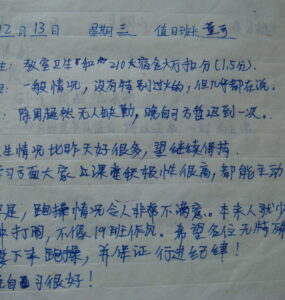 02月13日 星期三 值日班长 董
生：教室卫生和210大宿舍大厅扣分（1.5分）.
：一般情况，没有特别过火的，但几乎都在说.
：陈周超然无人缺勤，晚自习方哲迟到一次.
生情况比昨天好很多，望继续保持.
学习方面大家上课积极性很高，都能主动
足，跑操情况令人非常不满意. 本来人就少
中打闹，不像19班作风. 希望各位无特殊
要下来跑操，并保证行进纪律！
自习很好！